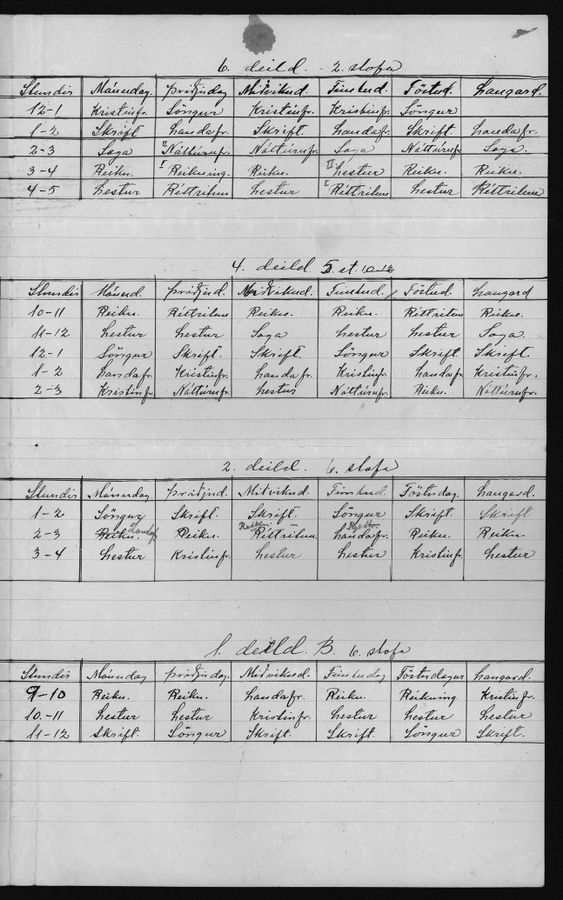 6. deild. - 2. stofa
Stundir Mánudag. þriðjudag Miðvikud. Fimtud. Föstud. Laugard.
12-1 Kristinfr. Söngur Kristinfr. Kristinfr. Söngur
1-2 Skrift Landafr. Skrift. Landafr. Skrift. Landafr.
2-3 Saga II Náttúrufr. Náttúrufr. Saga Náttúrufr. Saga.
3-4 Reikn. I Reikning. Reikn. II Lestur Reikn. Reikn.
4-5 Lestur Réttritun Lestur I Réttritun Lestur Réttritun
4. deild 5. st. 10-12
Stundir Mánud. þriðjud. Miðvikud. Fimtud. Föstud. Laugard
10-11 Reikn. Réttritun Reikn. Reikn. Réttritun Reikn.
11-12 Lestur Lestur Saga Lestur Lestur Saga.
12-1 Söngur Skrift. Skrift. Söngur Skrift Skrift.
1-2 Landafr. Kristinfr. Landafr. Kristinfr. Landafr. Kristinfr.
2-3 Kristinfr. Náttúrufr. Lestur Náttúrufr. Reikn. Náttúrufr.
2. deild. 6. stofa
Stundir Mánudag. þriðjud. Miðvikud. Fimtud. Föstudag. Laugard.
1-2 Söngur Skrift. Skrift. Söngur Skrift. Skrift
2-3 Reikn. Landafr Reikn. Réttritun Landafr. Reikn. Reikn.
3-4 Lestur Kristinfr. Lestur Lestur Kristinfr. Lestur
1. deild. B. 6. stofa
Stundir Mánudag þriðjudag. Miðvikud. Fimtudag Föstudagur Laugard.
9-10 Reikn. Reikn. Landafr. Reikn. Reikning Kristinfr.
10-11 Lestur Lestur Kristinfr. Lestur Lestur Lestur
11-12 Skrift. Söngur Skrift. Skrift Söngur Skrift.